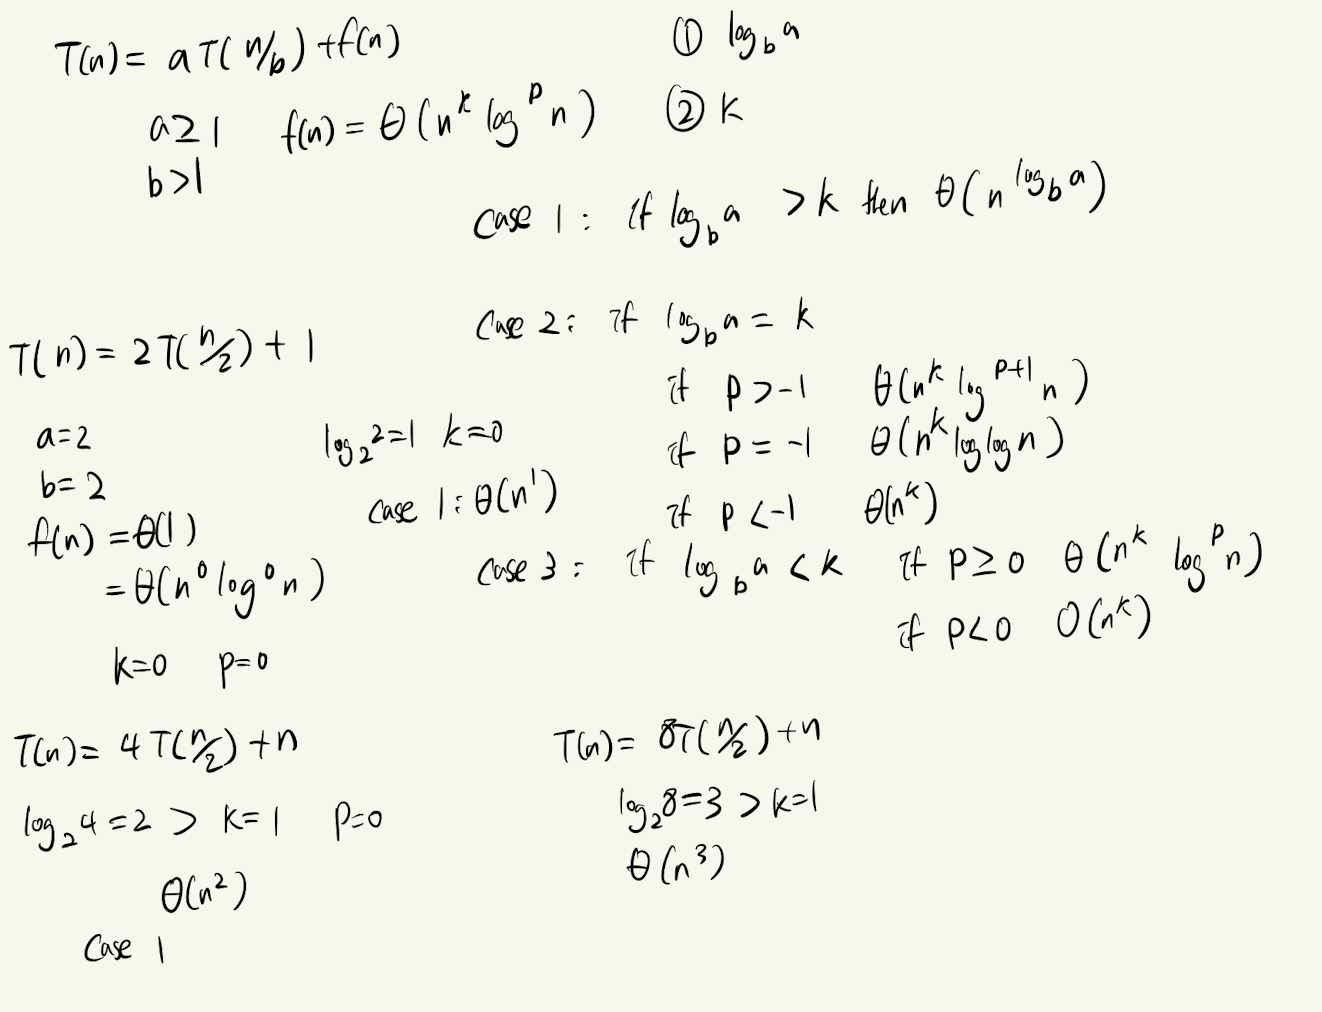 T(n) = aT(n/b) + f(n)
① log_b a
a ≥ 1 f(n) = θ(n^k log^p n)
② k
b > 1
Case 1 : if log_b a > k then θ(n^{log_b a})
Case 2 : if log_b a = k
if p > -1 θ(n^k log^{p+1} n)
if p = -1 θ(n^k log log n)
if p < -1 θ(n^k)
Case 3 : if log_b a < k if p ≥ 0 θ(n^k log^p n)
if p < 0 O(n^k)
T(n) = 2T(n/2) + 1
a = 2
b = 2
f(n) = θ(1)
= θ(n^0 log^0 n)
k=0 p=0
log_2 2 = 1 k=0
Case 1 : θ(n^1)
T(n) = 4T(n/2) + n
log_2 4 = 2 > k = 1 p=0
θ(n^2)
Case 1
T(n) = 8T(n/2) + n
log_2 8 = 3 > k=1
θ(n^3)